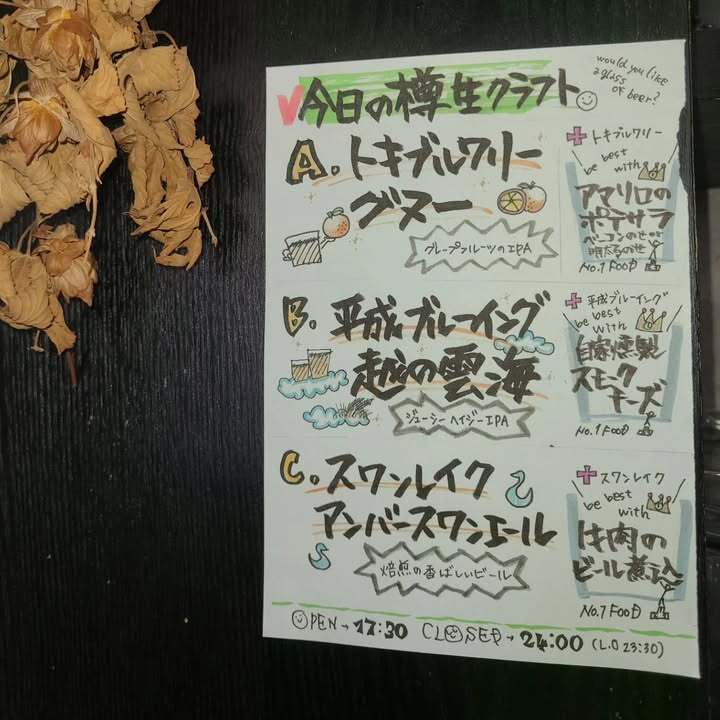 今日の樽生クラフト
would you like
a glass
of beer?
A. トキブルワリー
グヌー
グレープフルーツのIPA
+ トキブルワリー
be best
with
アマリロの
ポテサラ
ベーコンのせ
No.1 FOOD
B. 平成ブルーイング
越の雲海
ジューシーヘイジーIPA
+ 平成ブルーイング
be best
with
自家燻製
スモーク
チーズ
No.1 FOOD
C. スワンレイク
アンバースワンエール
焙煎の香ばしいビール
+ スワンレイク
be best
with
牛肉の
ビール煮込
No.1 FOOD
OPEN→17:30 CLOSED→24:00 (L.O 23:30)